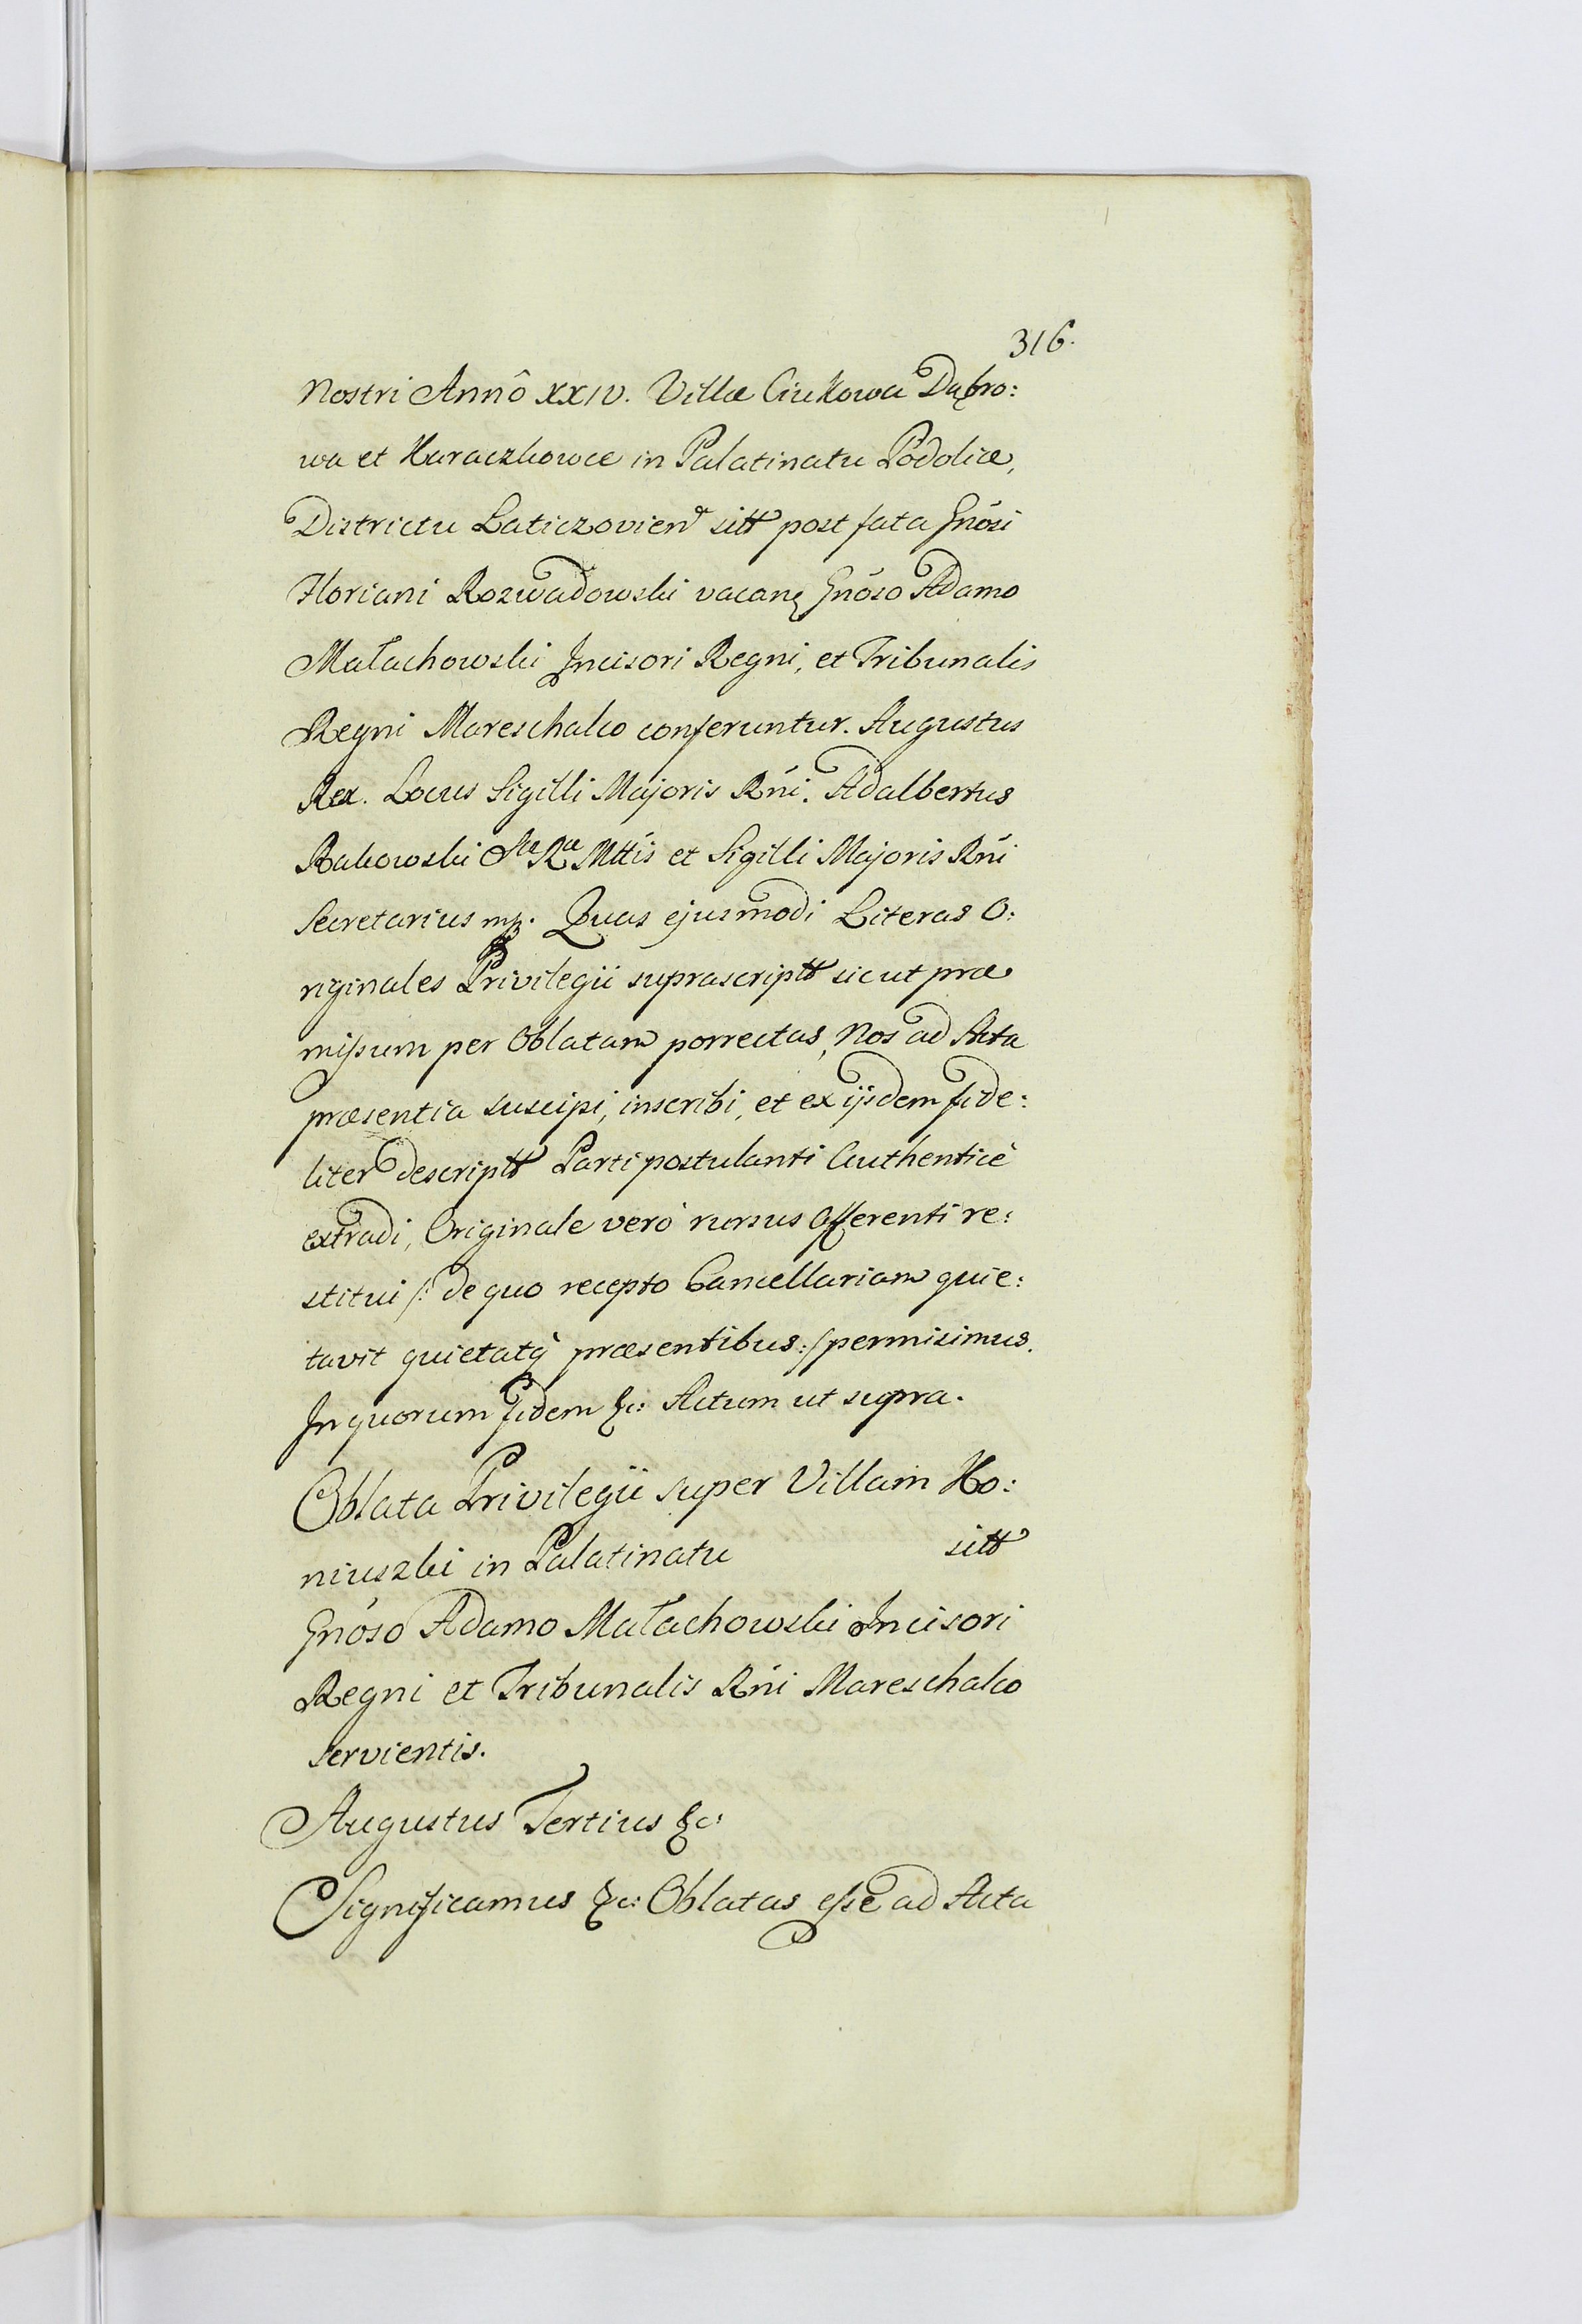 316.
Nostri Annô XXIV. Villæ Ciukowa Dąbro:
wa et Karaczkowce in Palatinatu Podoliæ,
Districtu Laticzovien sitt post fata Gnosi
Floriani Rozwadowski vacan Gnoso Adamo
Małachowski Incisori Regni, et Tribunalis
Regni Mareschalco conferuntur. Augustus
Rex. Locus Sigilli Majoris Rni. Adalbertus
Rakowski Sæ Ræ Mttis et Sigilli Majoris Rni
Secretarius mp. Quas ejusmodi Literas O:
riginales Privilegii suprascriptt sicut præ
missum per Oblatam porrectas, Nos ad Acta
præsentia suscipi, inscribi, et ex iisdem fide:
liter descriptt Parti postulanti Authenticè
extradi, Originale verò rursus Offerenti re:
stitui /: de quo recepto Cancellariam quie:
tavit quietatq præsentibus :/ permisimus.
In quorum fidem &c: Actum ut supra.
Oblata Privilegii super Villam Ho:
niuszki in Palatinatu sitt
Gnoso Adamo Małachowski Incisori
Regni et Tribunalis Rni Mareschalco
servientis.
Augustus Tertius &c:
Significamus &c: Oblatas esse ad Acta